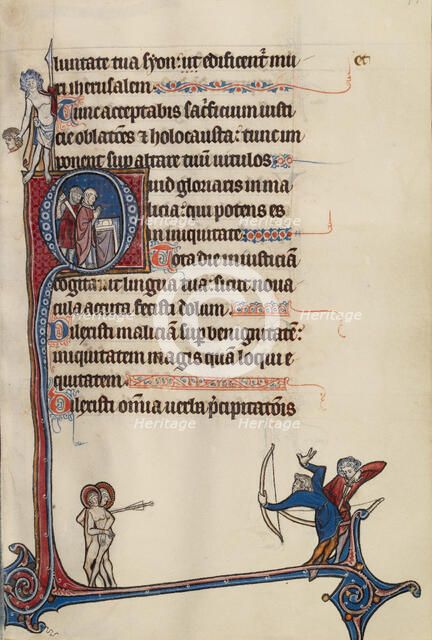 luntate tua syon: ut edificent᷑ mu
ri iherusalem.
Tunc acceptabis sac᷑ficium iusti
cie oblat᷑oes & holocausta: tunc im
ponent sup̱ altare tuū vitulos
Quid gloriaris in ma
licia: qui potens es
in iniquitate
Tota die iniusticiam
cogitauit lingua tua: sicut noua
cula acuta fecisti dolum.
Dilexisti maliciam sup̱ benignitatē:
iniquitatem magis quā loqui e
quitatem.
Dilexisti omīa uerba p̄cipitatōis
et
Heritage
Heritage
Heritage
Heritage
Heritage
Heritage